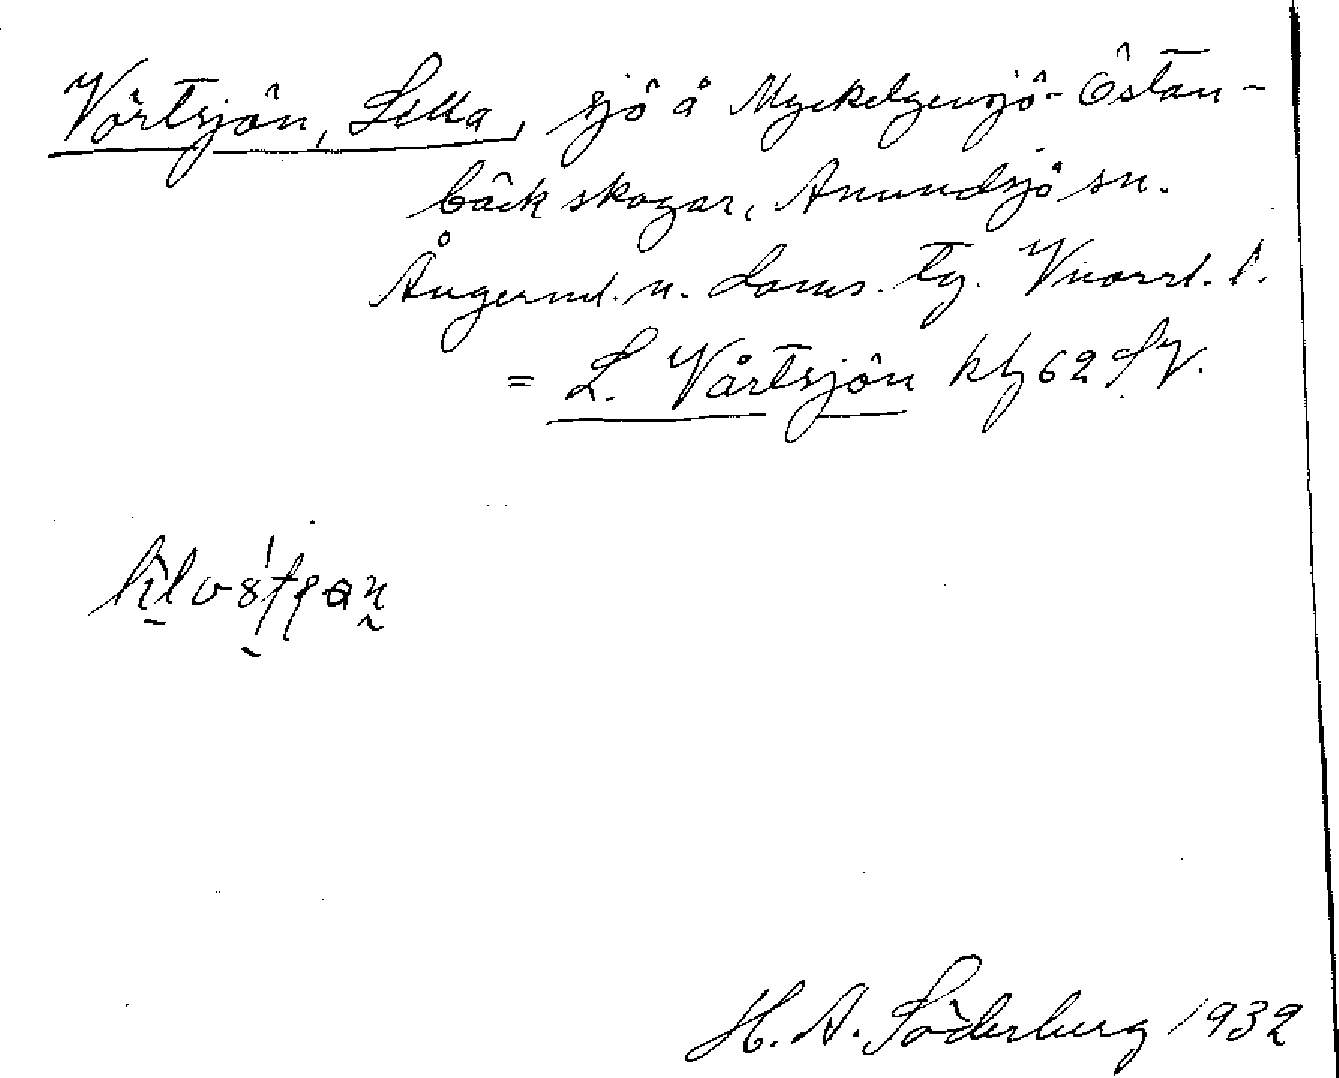 Vårtsjön, Lilla, sjö å Myckelgensjö-Östan-
bäck skogar, Anundsjö sn.
Ångerml. n. doms. tg. Vnorrl. l.
= L. Vårtsjön kbl 62 SV.
H. A. Söderberg 1932